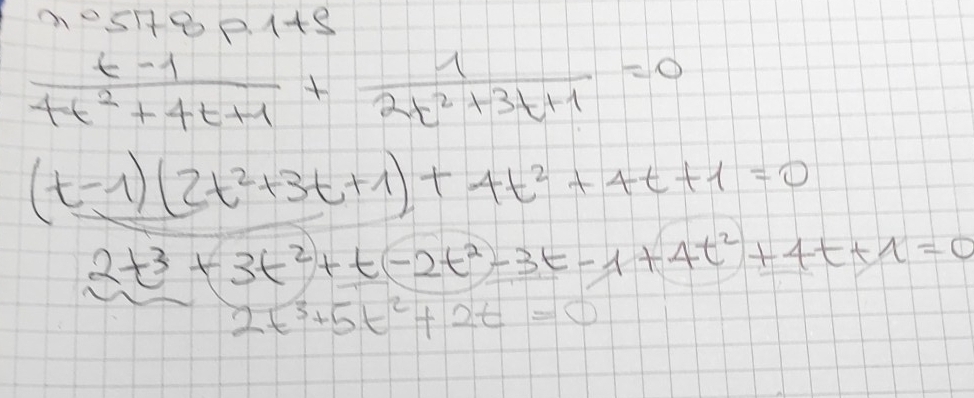 n° 578 p. 148
(t - 1)/(4t² + 4t + 1) + 1/(2t² + 3t + 1) = 0
(t - 1)(2t² + 3t + 1) + 4t² + 4t + 1 = 0
2t³ + 3t² + t - 2t² - 3t - 1 + 4t² + 4t + 1 = 0
2t³ + 5t² + 2t = 0